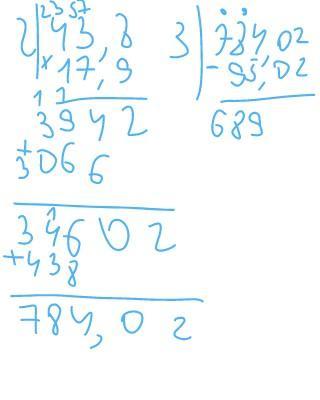 2 3 57
2| 43,8
× 17,9
1 1
3942
+
3066
1
34602
+438
784,02
3| 784,02
- 95,02
689